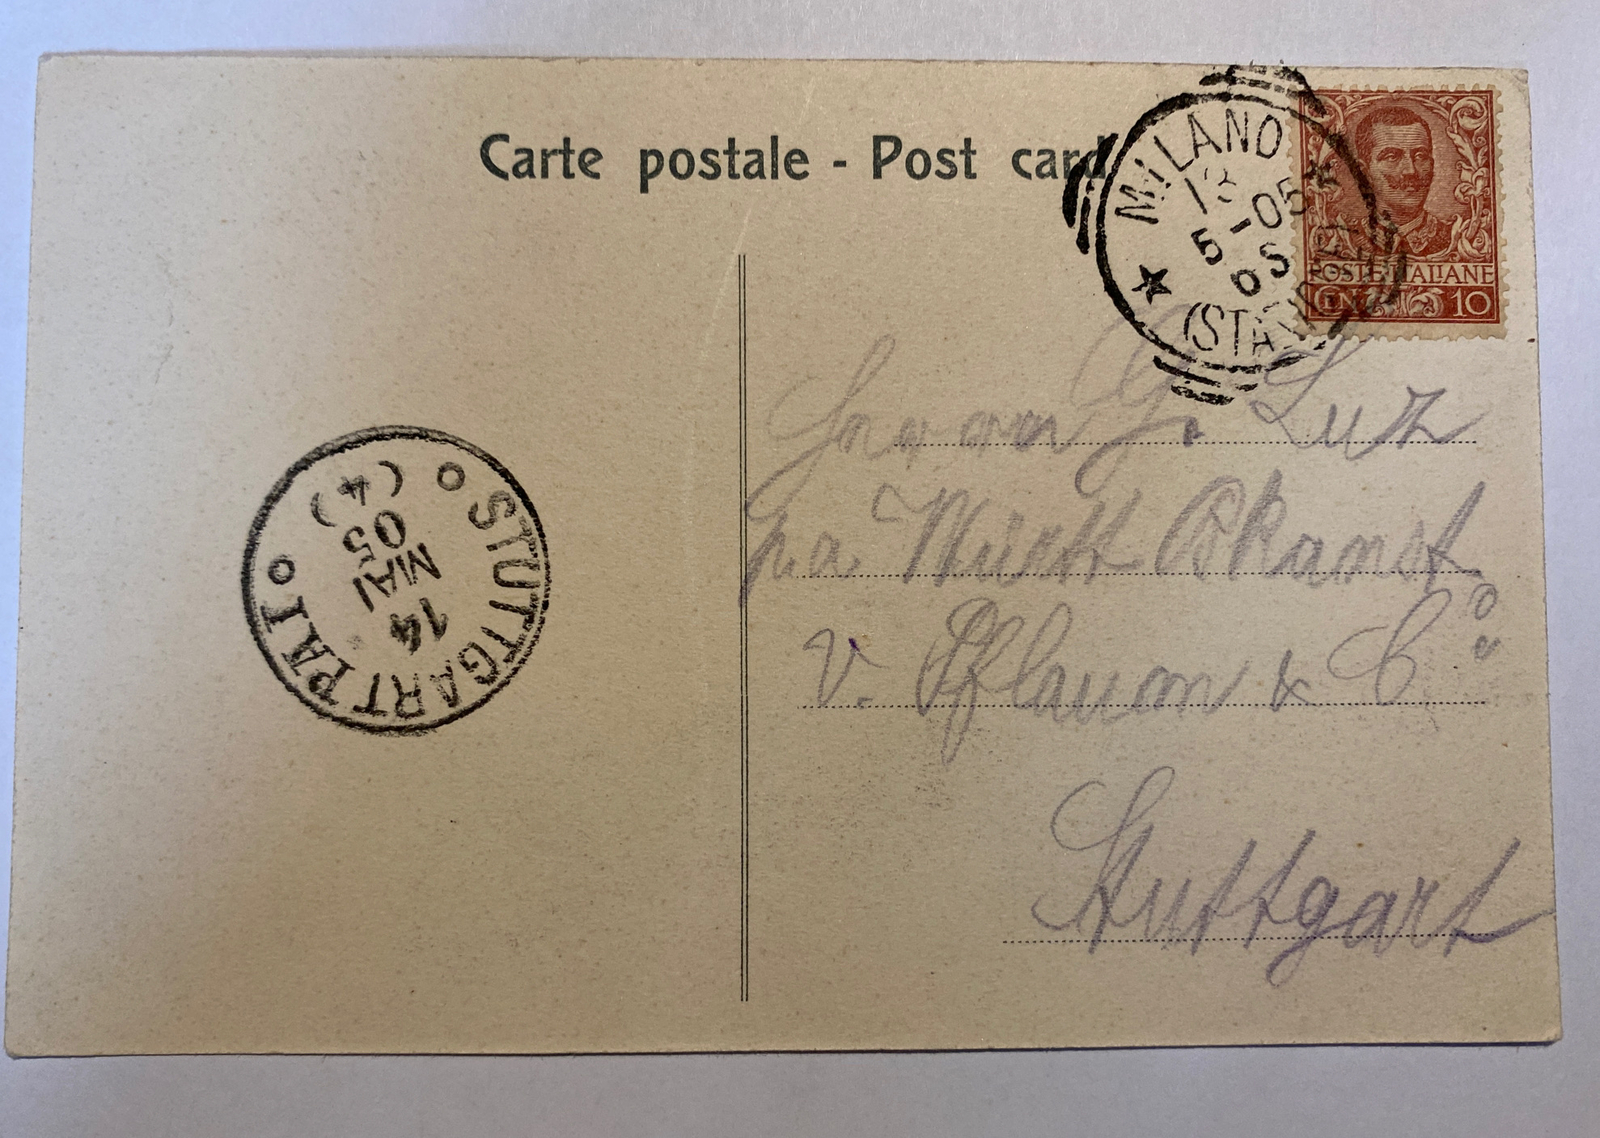 Carte postale - Post card
MILANO
13
5-05
6S
(STAZIONE)
POSTE ITALIANE
CENT 10
Herrn G. Luz
pa
v. Pflaum & Cº
Stuttgart
STUTTGART P.A.I
14
MAI
05
(4)